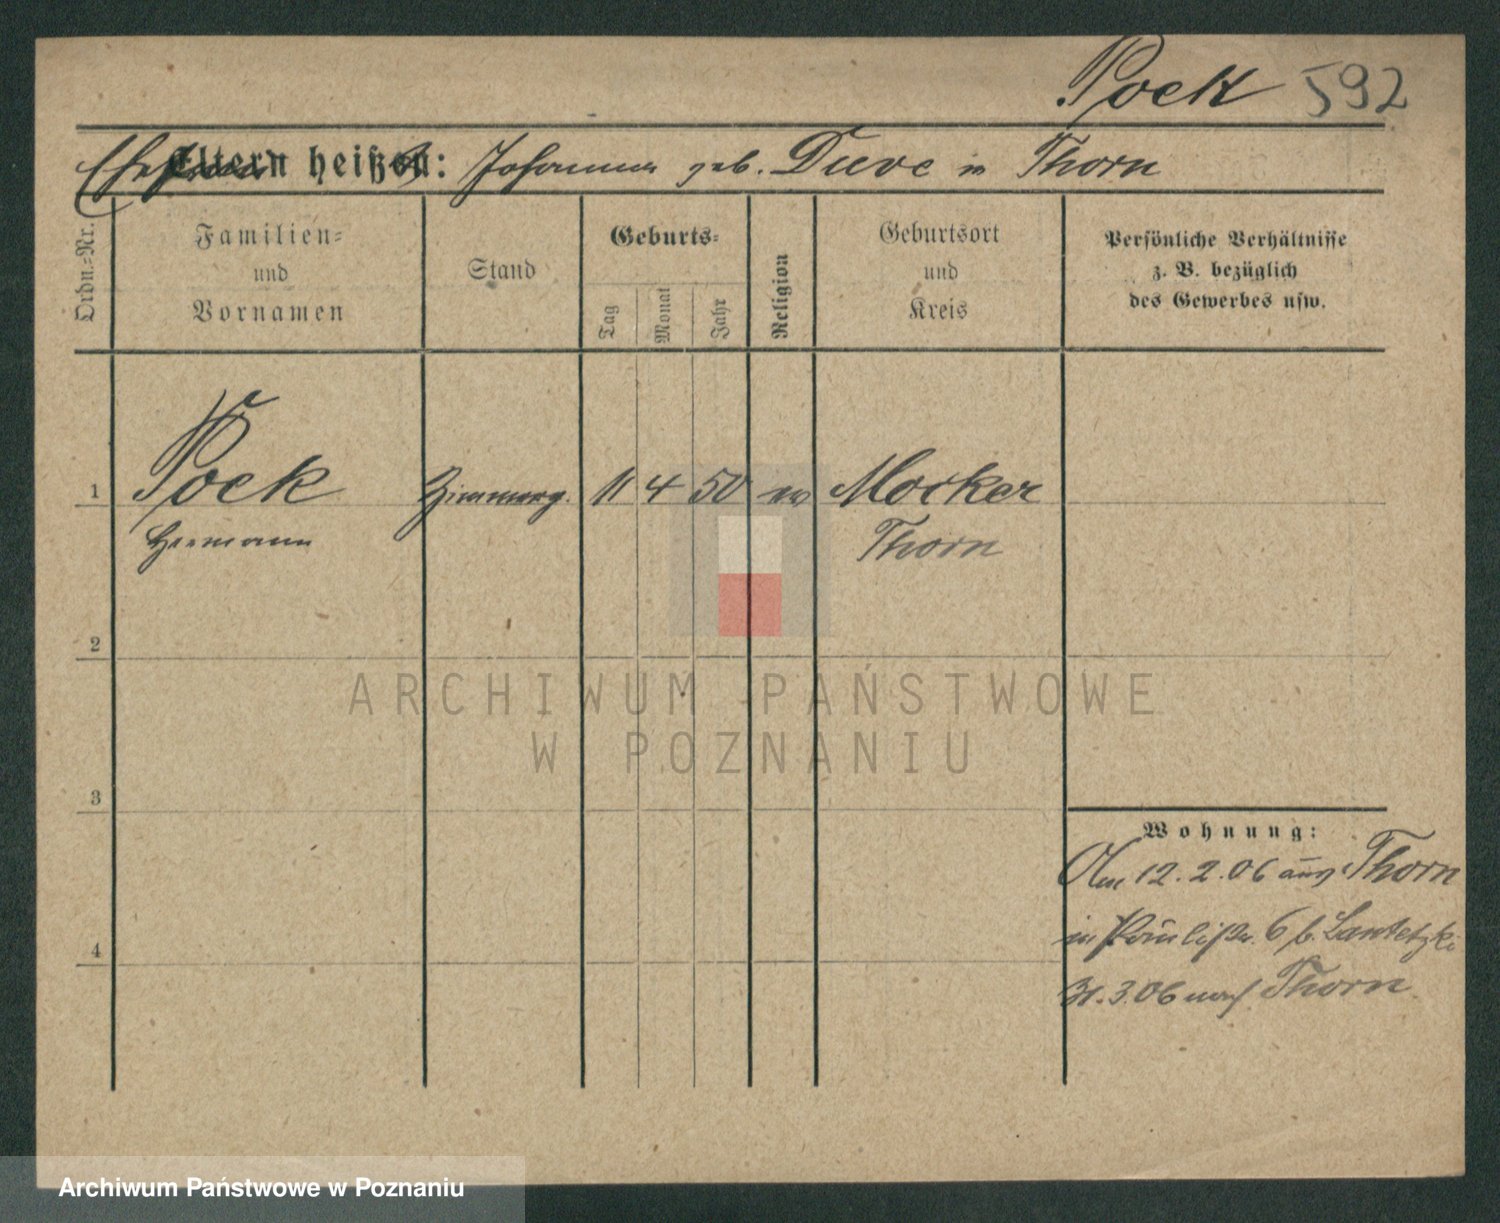 Pock 592
Eltern heißen: Johanna geb. Duve in Thorn
Ordn.-Nr.
Familien-
und
Vornamen
Stand
Geburts-
Tag
Monat
Jahr
Religion
Geburtsort
und
Kreis
Persönliche Verhältnisse
z. B. bezüglich
des Gewerbes usw.
1 Pock Zimmerg. 11 4 50 ev Mocker
Hermann Thorn
2
3
4
ARCHIWUM PAŃSTWOWE
W POZNANIU
Wohnung:
Am 12.2.06 aus Thorn
in Paulistr. 6 b.
31.3.06 nach Thorn
Archiwum Państwowe w Poznaniu